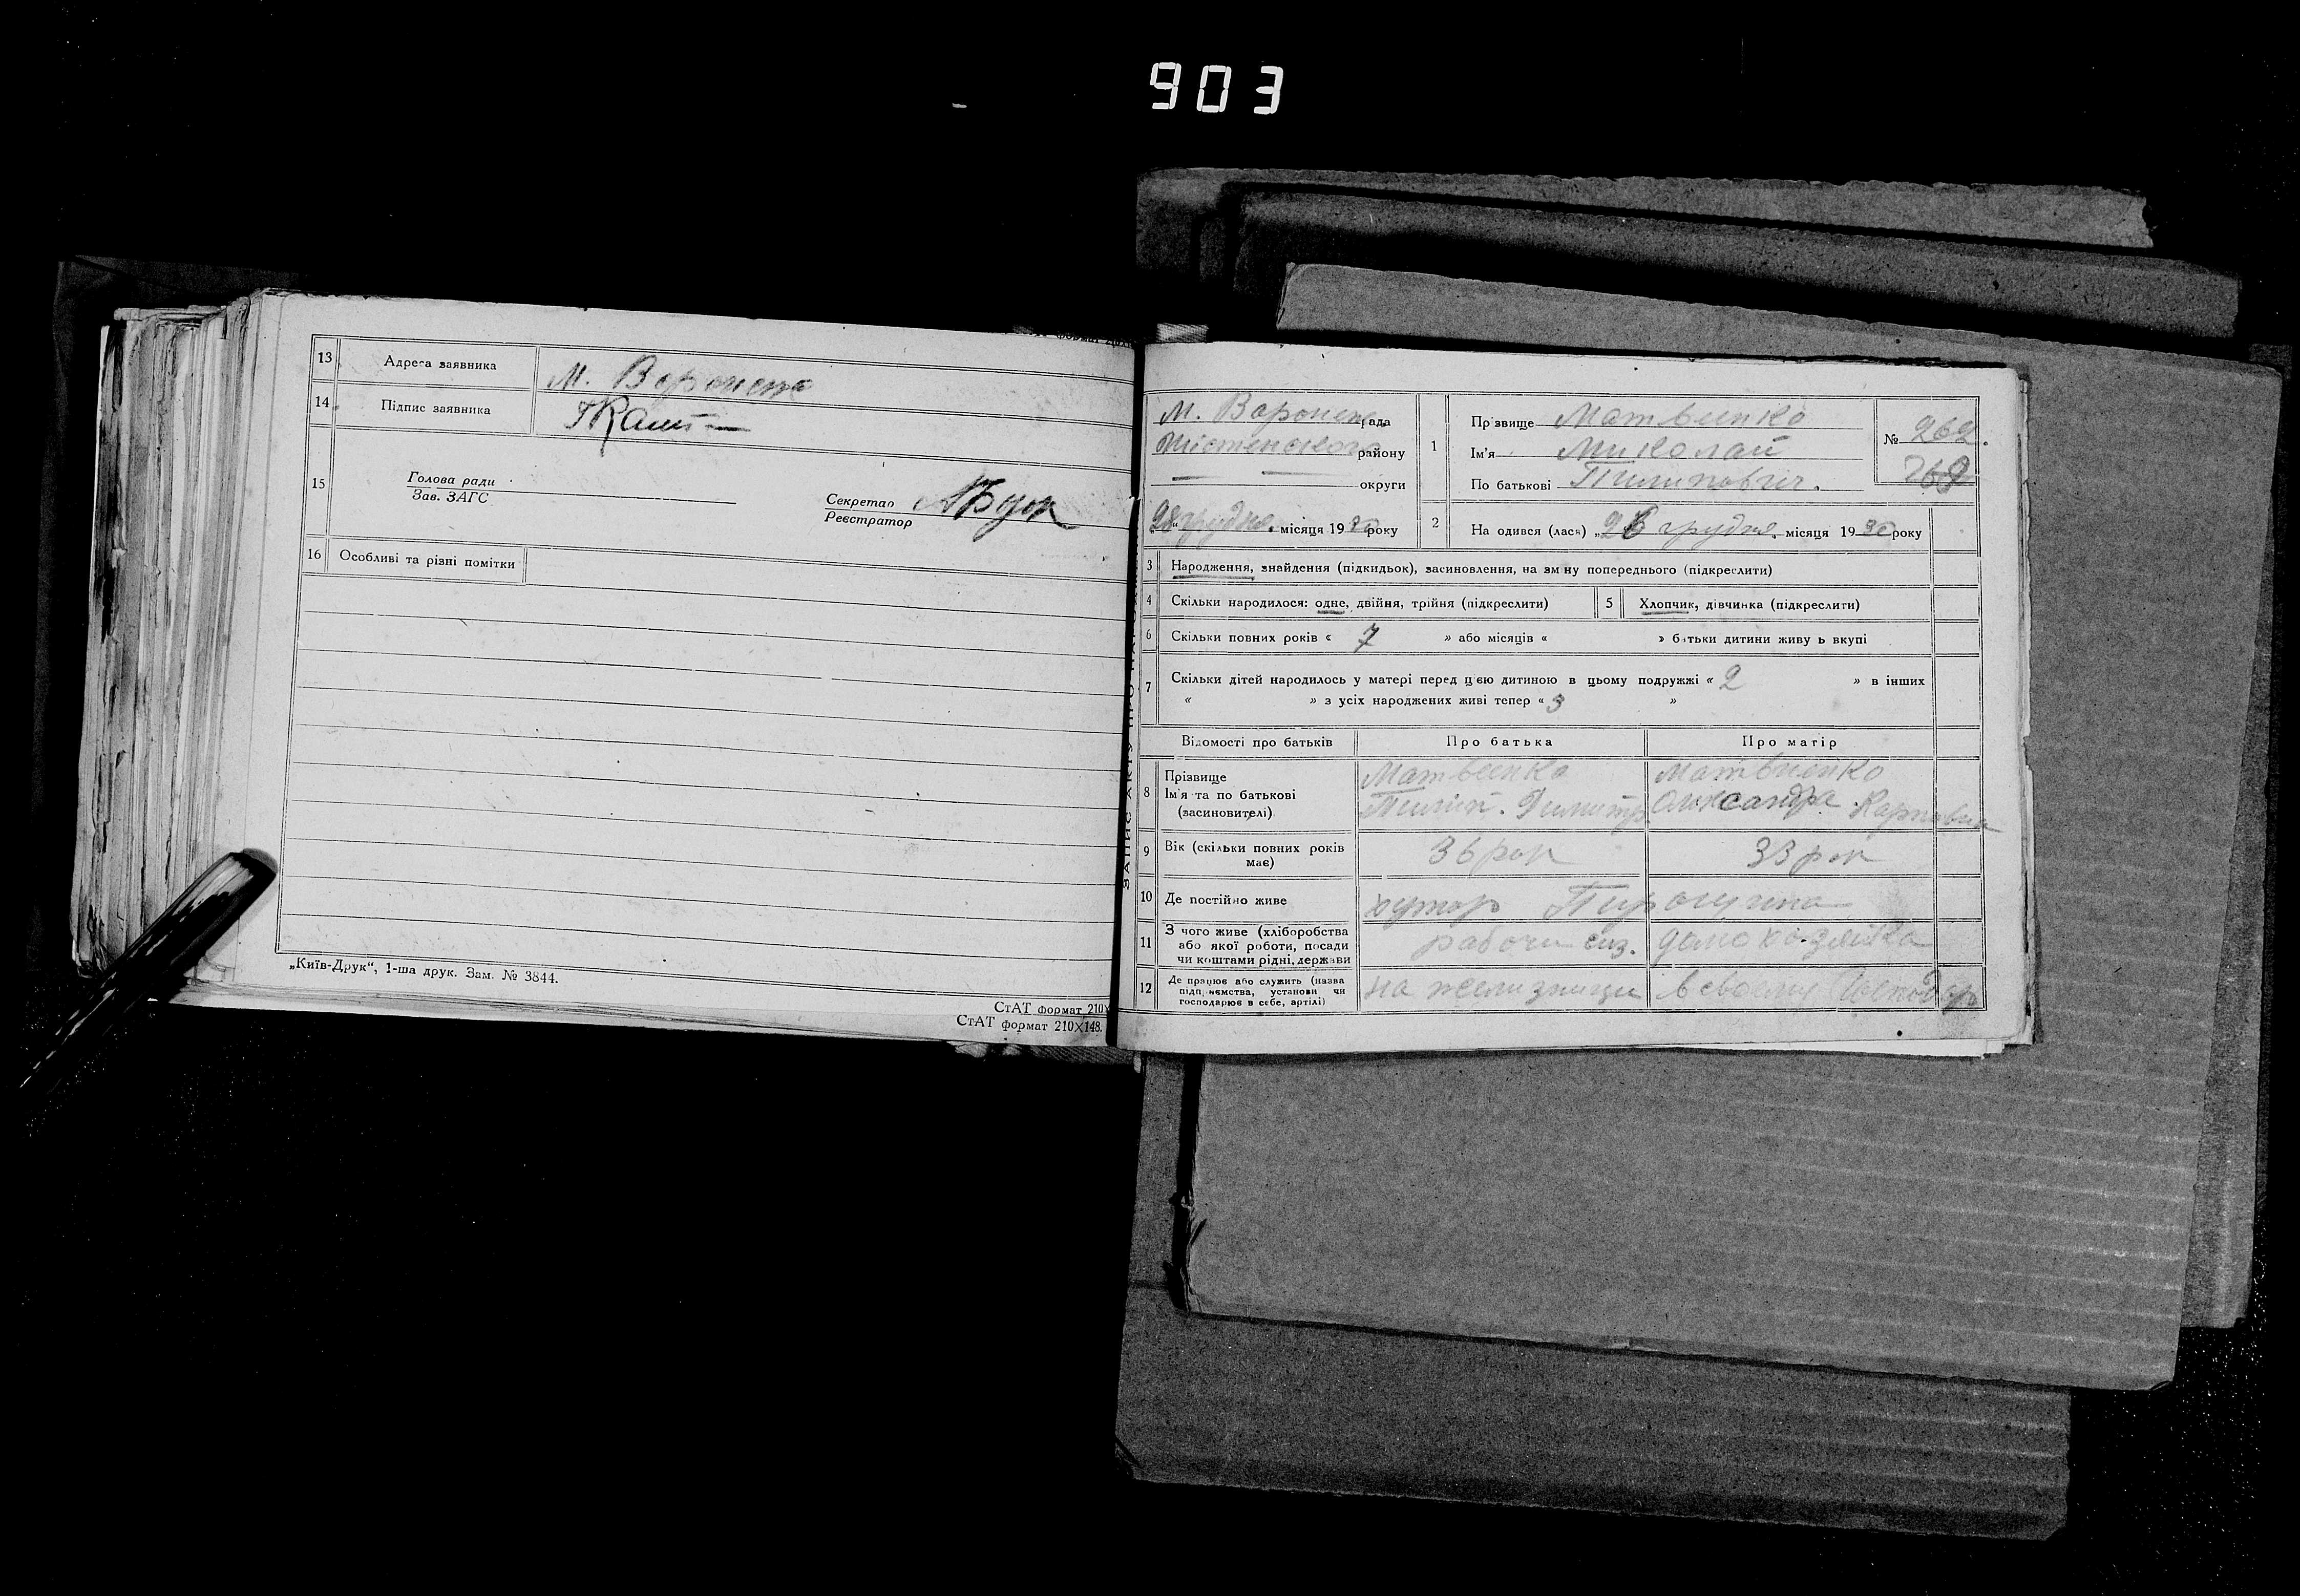 903
13 Адреса заявника М. Воронеж
14 Підпис заявника
15 Голова ради
Зав. ЗАГС
Секретар
Реєстратор
16 Особливі та різні помітки
„Київ-Друк“, 1-ша друк. Зам. № 3844.
СтАТ формат 210Х
СтАТ формат 210Х148.
М. Воронеж рада
району
округи
28 грудня місяця 1930 року
1 Прізвище Матвеенко
Ім'я Миколай
По батькові Пилипович.
№ 262.
2 На одився (лася) „26 грудня. місяця 1930 року
3 Народження, знайдення (підкидьок), засиновлення, на зм ну попереднього (підкреслити)
4 Скільки народилося: одне, двійня, трійня (підкреслити) 5 Хлопчик, дівчинка (підкреслити)
6 Скільки повних років « 7 » або місяців « » батьки дитини живу ь вкупі
7 Скільки дітей народилось у матері перед цією дитиною в цьому подружжі « 2 » в інших
« » з усіх народжених живі тепер « 3 »
Відомості про батьків Про батька Про матір
8 Прізвище Матвеенко Матвиенко
Ім'я та по батькові Пилип. Олександра Карповна
(засиновителі)
9 Вік (скільки повних років 36 рок 33 рок
має)
10 Де постійно живе хутор
11 З чого живе (хліборобства
або якої роботи, посади робочи домохозяйка
чи коштами рідні, держави
12 Де працює або служить (назва
підп иємства, установи чи на желизници в своему
господарює в себе, артілі)